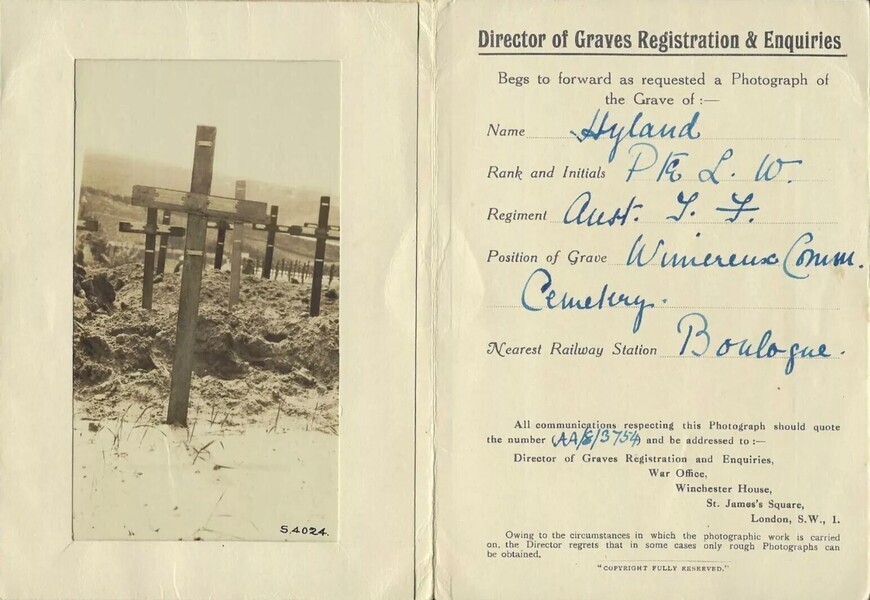 S.4024.
Director of Graves Registration & Enquiries
Begs to forward as requested a Photograph of
the Grave of :—
Name Hyland
Rank and Initials Pte L. W.
Regiment Aust. I. F.
Position of Grave Wimereux Comm.
Cemetery.
Nearest Railway Station Boulogne.
All communications respecting this Photograph should quote
the number (AA/8/3754) and be addressed to :—
Director of Graves Registration and Enquiries,
War Office,
Winchester House,
St. James's Square,
London, S.W., 1.
Owing to the circumstances in which the photographic work is carried
on, the Director regrets that in some cases only rough Photographs can
be obtained.
"COPYRIGHT FULLY RESERVED."